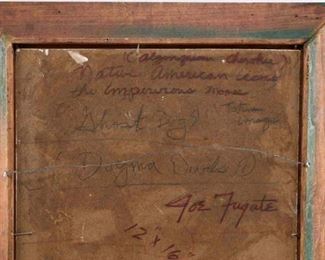 (Algonquian Cherokee)
Native American icons
the impervious Moose
Ghost Dogs
Totem
images
Dogma Duals
Joe Fugate
12" x 16"